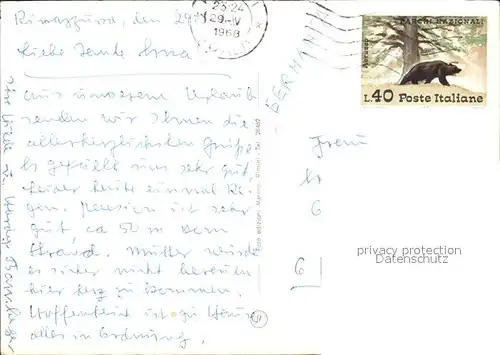 Rivazzurra, den 29.
Liebe Tante Erna
aus unserem Urlaub
senden wir Ihnen die
allerherzlichsten Grüße
Es gefällt uns sehr gut,
leider heute einmal Re-
gen. Pension ist sehr
gut, ca 50 m vom
Strand. Mutter würde
es sicher nicht bereuen
hier her zu kommen.
Hoffentlich ist zu Hause
alles in Ordnung.
Ihre
23-24
29-IV
1968
GERMANIA
PARCHI NAZIONALI
Abruzzo
L.40 Poste Italiane
Frau
G
6
privacy protection
Datenschutz